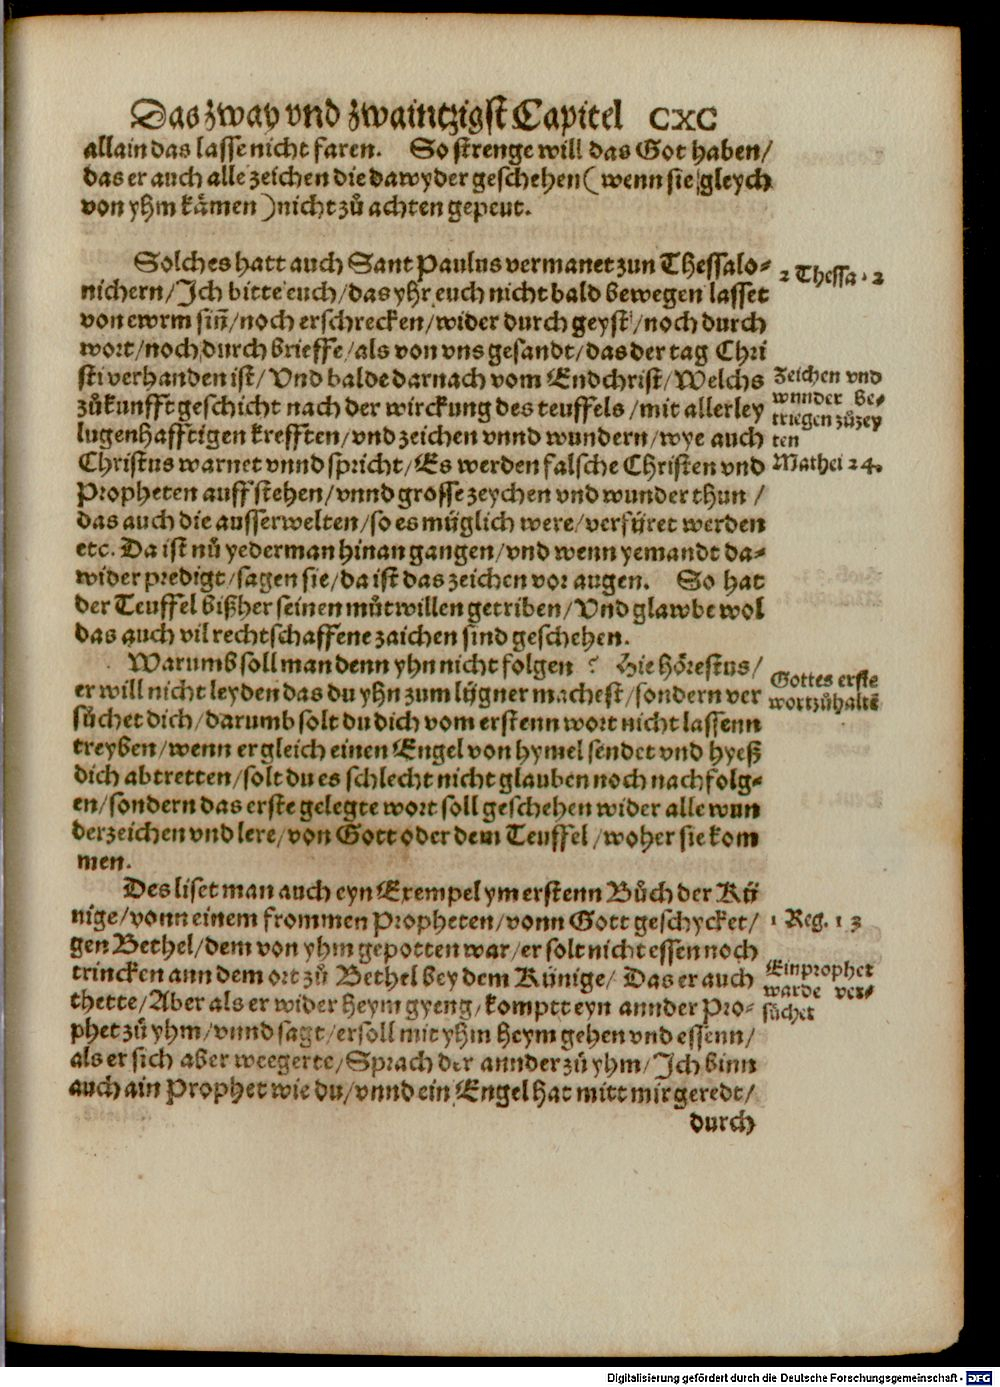 Das zway vnd zwaintzigst Capitel CXC
allain das lasse nicht faren. So strenge will das Got haben/
das er auch alle zeichen die dawyder geschehen (wenn sie gleych
von yhm kämen) nicht zů achten gepeut.
Solches hatt auch Sant Paulus vermanet zun Thessalo-
nichern/Ich bitte euch/das yhr euch nicht bald bewegen lasset
von ewrm siñ/noch erschrecken/wider durch geyst/noch durch
wort/noch durch brieffe/als von vns gesandt/das der tag Chri
sti verhanden ist/Vnd balde darnach vom Endchrist/Welchs
zůkunfft geschicht nach der wirckung des teuffels/mit allerley
lugenhafftigen krefften/vnd zeichen vnnd wundern/wye auch
Christus warnet vnnd spricht/Es werden falsche Christen vnd
Propheten auff stehen/vnnd grosse zeychen vnd wunder thun/
das auch die ausserwelten/so es müglich were/verfüret werden
etc. Da ist nů yederman hinan gangen/vnd wenn yemandt da-
wider predigt/sagen sie/da ist das zeichen vor augen. So hat
der Teuffel bißher seinen můtwillen getriben/Vnd glawbe wol
das auch vil rechtschaffene zaichen sind geschehen.
Warumb soll man denn yhn nicht folgen? Hie hörestus/
er will nicht leyden das du yhn zum lügner machest/sondern ver
sůchet dich/darumb solt du dich vom erstenn wort nicht lassenn
treyben/wenn er gleich einen Engel von hymel sendet vnd hyeß
dich abtretten/solt du es schlecht nicht glauben noch nachfolg-
en/sondern das erste gelegte wort soll geschehen wider alle wun
derzeichen vnd lere/von Gott oder dem Teuffel/woher sie kom
men.
Des liset man auch eyn Exempel ym erstenn Bůch der Kü
nige/vonn einem frommen Propheten/vonn Gott geschycket/
gen Bethel/dem von yhm gepotten war/er solt nicht essen noch
trincken ann dem ort zů Bethel bey dem Künige/Das er auch
thette/Aber als er wider heym gyeng/komptt eyn annder Pro-
phet zů yhm/vnnd sagt/er soll mit yhm heym gehen vnd essenn/
als er sich aber weegerte/Sprach der annder zů yhm/Ich binn
auch ain Prophet wie du/vnnd ein Engel hat mitt mir geredt/
durch
2 Thessa. 2
Zeichen vnd
wunder be-
triegen zůzey
ten
Mathei 24.
Gottes erste
wort zůhaltē
1 Reg. 13
Ein prophet
warde ver-
sůchet
Digitalisierung gefördert durch die Deutsche Forschungsgemeinschaft - DFG